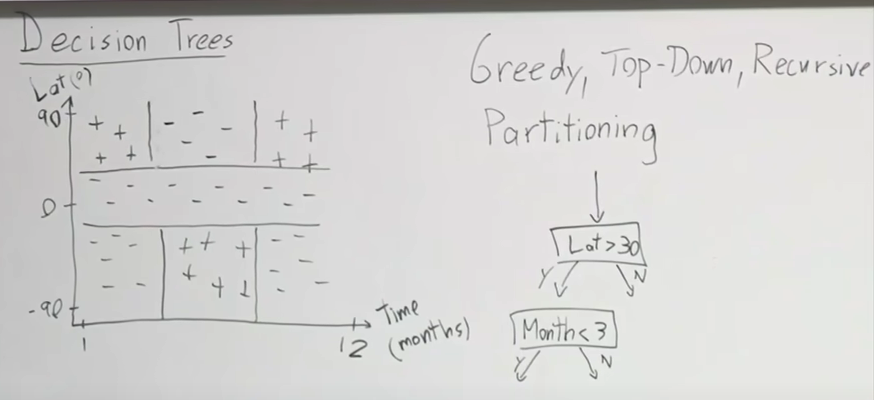 Decision Trees
Lat(°)
90
0
-90
1
12
Time
(months)
Greedy, Top-Down, Recursive
Partitioning
Lat>30
Y
N
Month<3
Y
N